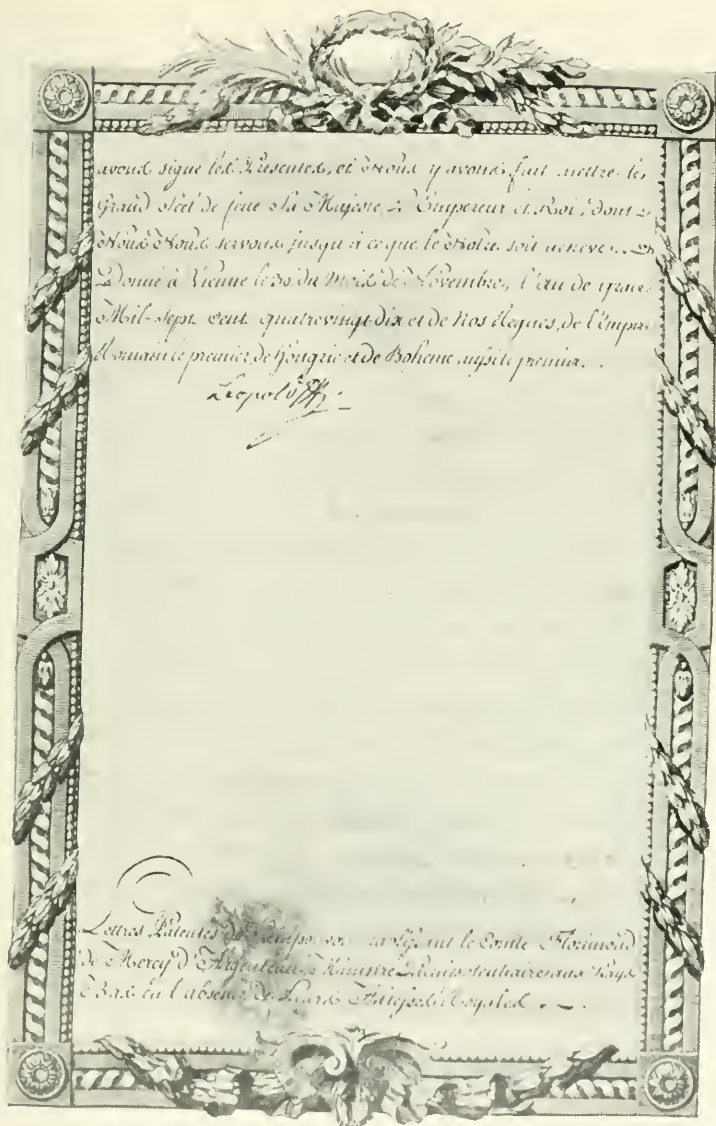 avons signé les Presentes, et Nous y avons fait mettre le
Grand Scel de feue Sa Majesté L'Empereur et Roi, dont
Nous Nous servons jusqu'à ce que le Notre soit achevé.
Donné à Vienne le 30 du Mois de Novembre, l'an de grace
Mil-Sept Cent quatrevingt-dix et de Nos Regnes, de l'Empire
Romain le premier, de Hongrie et de Boheme aussi le premier.
Léopold
Lettres Patentes de l'Empereur le Comte Florimond
de Mercy d'Argenteau, Ministre Plenipotentiaire aux Pays
Bas en l'absence de Leurs Altesses Royales.